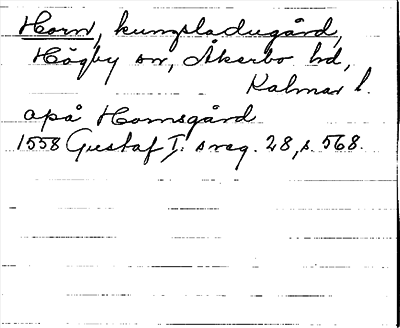 Horn, kungsladugård,
Högby sn, Åkerbo hd,
Kalmar l.
apå Hornsgård
1558 Gustaf I:s reg. 28, s. 568.